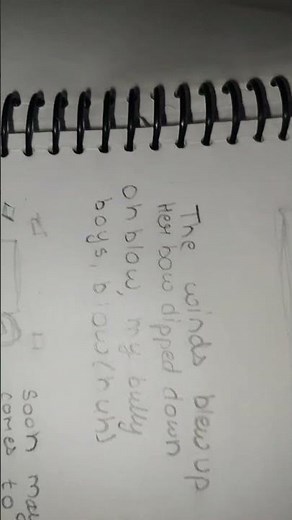 The winds blew up
Her bow dipped down
oh blow, my bully
boys, blow (huh)
soon may
comes to